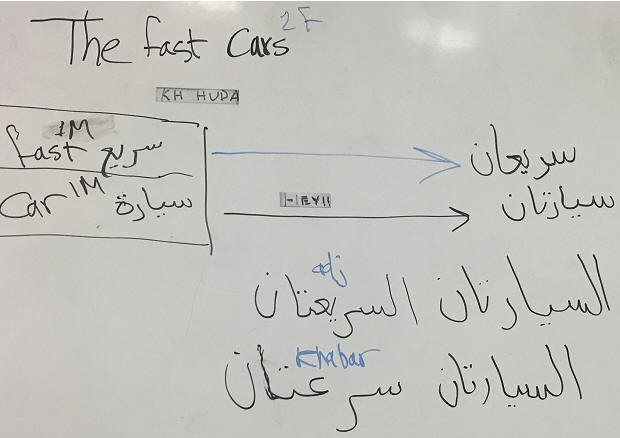 The fast Cars 2F
KH HUDA
1M
fast سريع
سريعان
Car 1M سيارة
سيارتان
adj
السيارتان السريعتان
khabar
السيارتان سرعتان